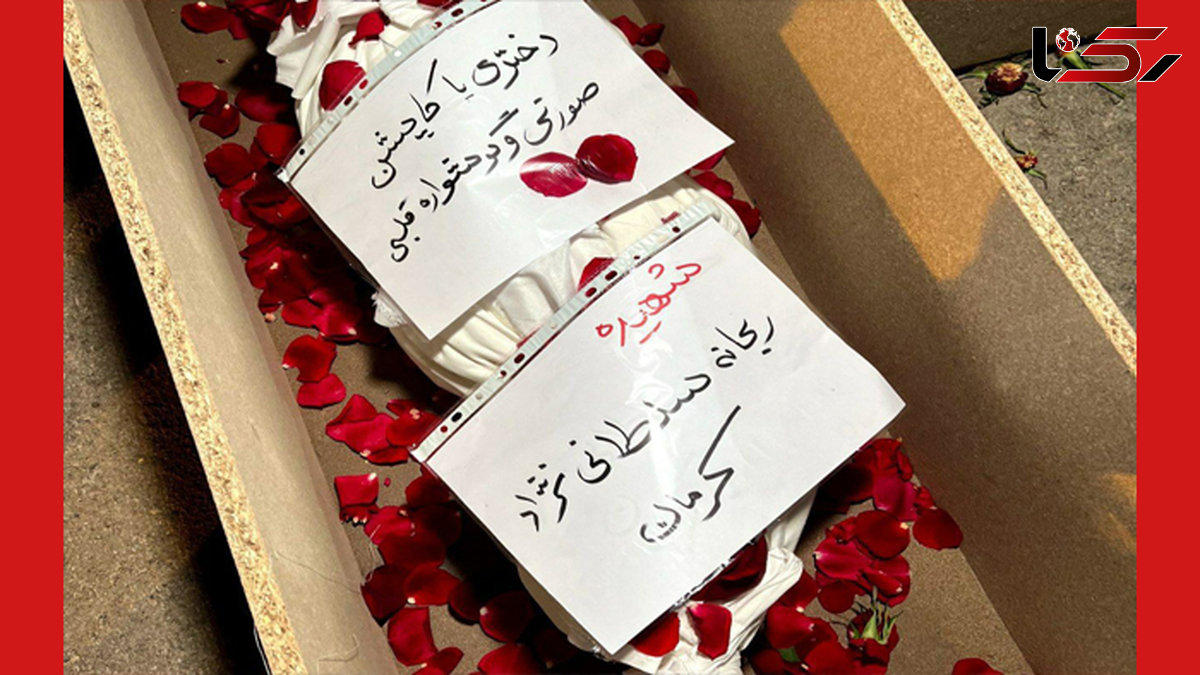 دختری با کاپشن
صورتی و گوشواره قلبی
شهیده
ریحانه سلطانی نژاد
کرمان
رکنا